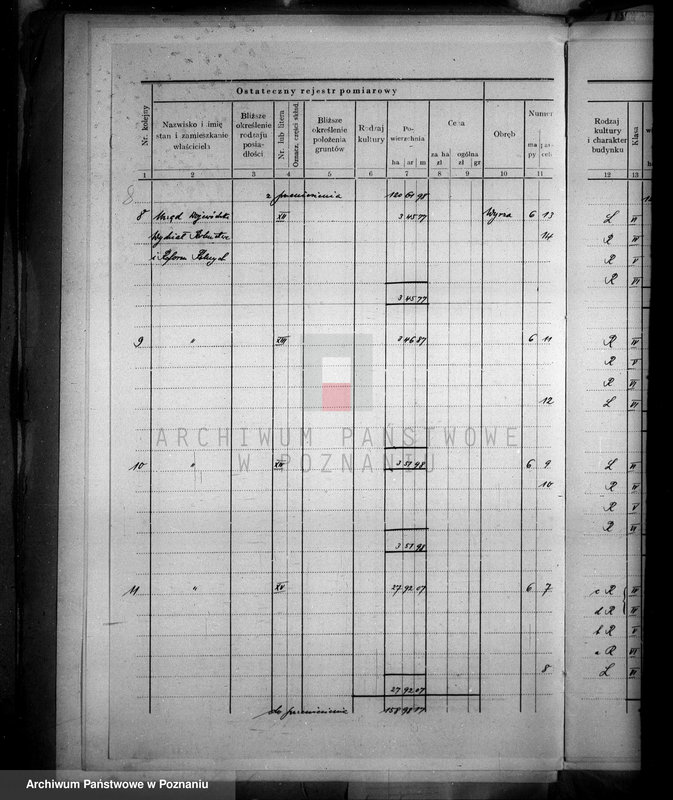 Ostateczny rejestr pomiarowy
Nr. kolejny
Nazwisko i imię stan i zamieszkanie właściciela
Bliższe określenie rodzaju posiadłości
Nr. lub litera
Oznacz. części skład.
Bliższe określenie położenia gruntów
Rodzaj kultury
Powierzchnia
ha ar m
Cena
za ha zł
ogólna zł gr
Obręb
Numer
mapy
Rodzaj kultury i charakter budynku
Klasa
1 2 3 4 5 6 7 8 9 10 11 12 13
8
z przeniesienia 120 61 98
8 Urząd Wojewódzki XII 3 45 77 6 13 L VI
Wydział Rolnictwa 14 R IV
i Reform Rolnych R V
R VI
3 45 77
9 " XIII 3 46 87 6 11 R IV
R V
R VI
12 L VI
ARCHIWUM PAŃSTWOWE
W POZNANIU
10 " 3 51 98 6 9 L VI
10 R IV
R V
R VI
3 51 98
11 " XV 27 92 07 6 7 c R IV
d R IV
b R V
a R VI
8 L VI
27 92 07
do przeniesienia 158 98 87
Archiwum Państwowe w Poznaniu